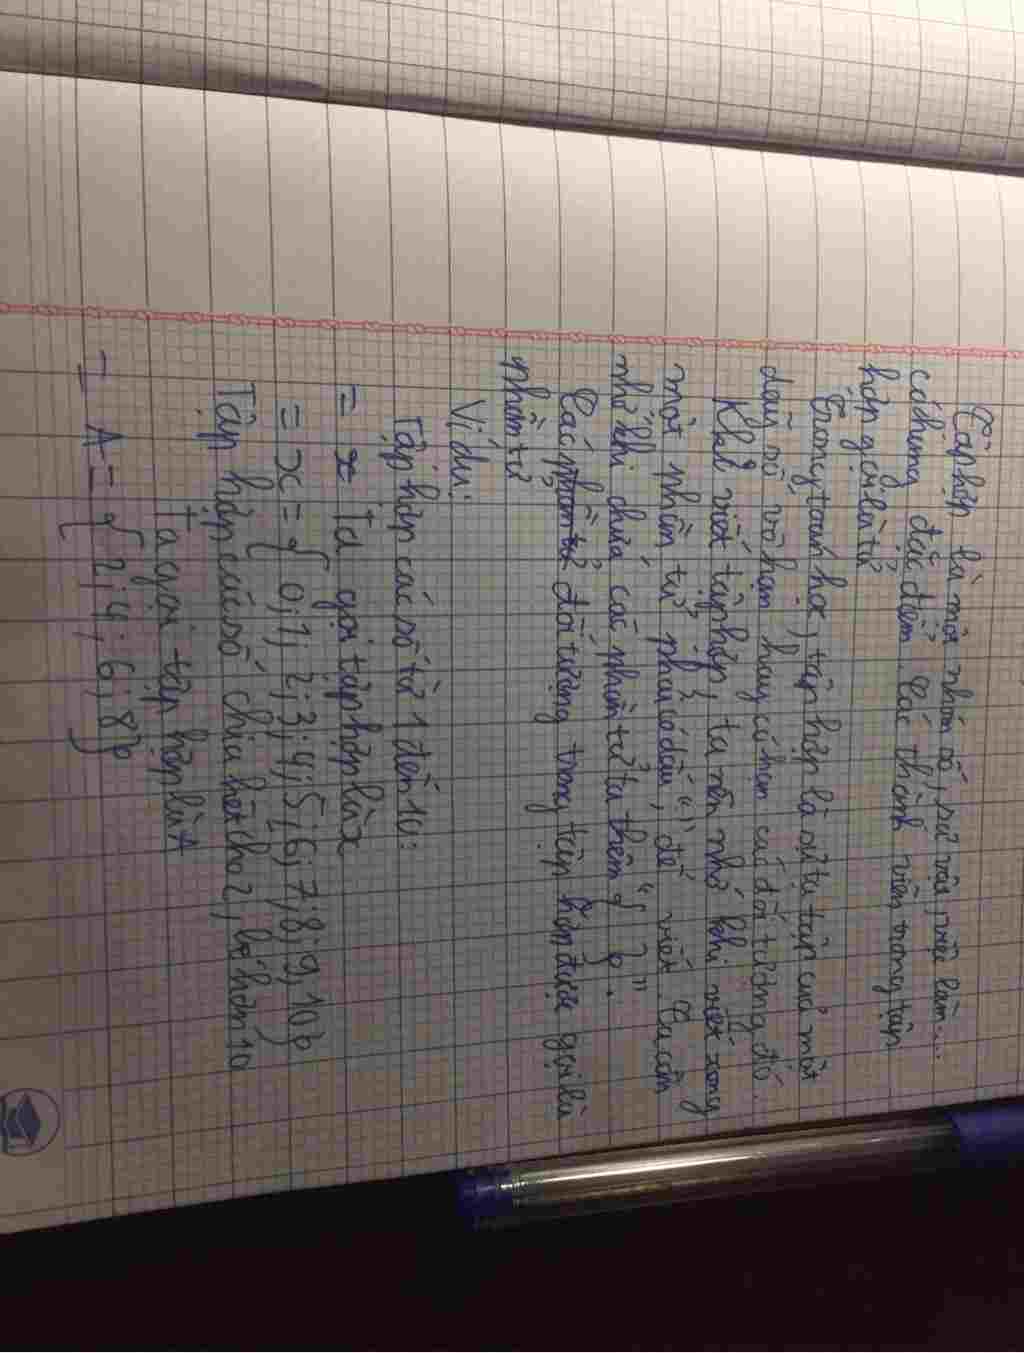 Tập hợp là một nhóm đồ, sự vật, việc làm...
có chung đặc điểm. Các thành viên trong tập
hợp gọi là tử
Trong toán học, tập hợp là sự tụ tập của một
dãy số vô hạn hay có hạn các đối tượng đó.
Khi viết tập hợp, ta nên nhớ khi viết xong
một phần tử phải có dấu ";" để viết. Ta cần
nhớ khi chứa các phần tử ta thêm "{ }".
Các phần tử đối tượng trong tập hợp được gọi là
phần tử
Ví dụ:
Tập hợp các số từ 1 đến 10:
= x Ta gọi tập hợp là x
= x = { 0; 1; 2; 3; 4; 5; 6; 7; 8; 9; 10}
Tập hợp các số chia hết cho 2, bé hơn 10
Ta gọi tập hợp là A
= A = { 2; 4; 6; 8}